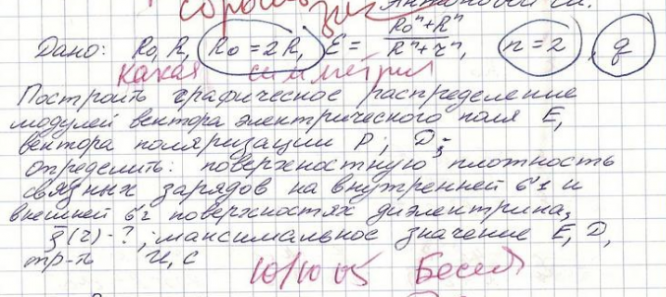 Дано: R₀, R, R₀ = 2R, E = (R₀ⁿ + Rⁿ)/(Rⁿ + rⁿ), n = 2, q
какая симметрия
Построить графическое распределение
модулей вектора электрического поля E,
вектора поляризации P; D;
определить: поверхностную плотность
связных зарядов на внутренней б'1 и
внешней б'2 поверхностях диэлектрика,
ρ(r) - ?; максимальное значение E, D,
10/10 05